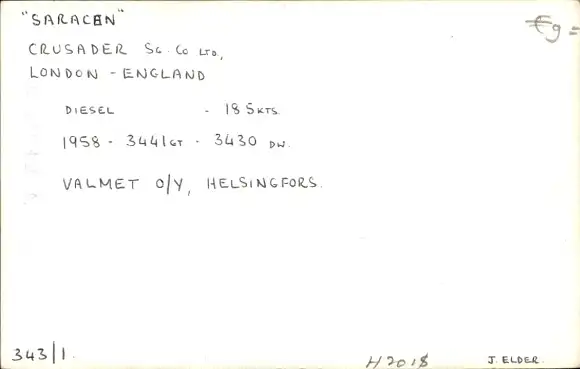 "SARACEN"
€9=
CRUSADER SG. CO LTD.,
LONDON - ENGLAND
DIESEL - 18.5KTS.
1958 - 3441GT - 3430 DW.
VALMET O/Y, HELSINGFORS.
343/1
H2018
J. ELDER.